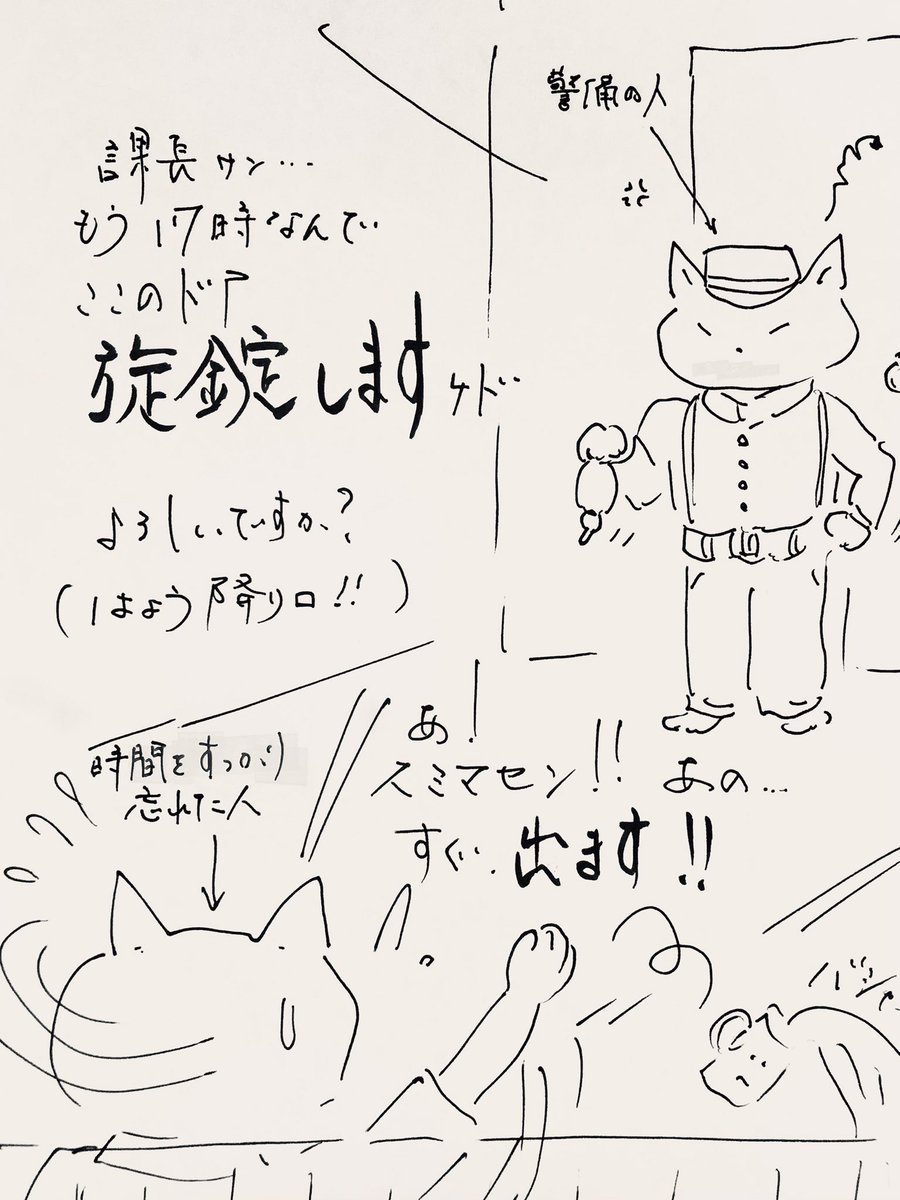 警備の人
課長サン…
もう17時なんで
ここのドア
施錠しますケド
よろしいですか?
(はよう降り口!!)
時間をすっかり
忘れてた人
あ!
スミマセン!! あの…
すぐ出ます!!
バシャ